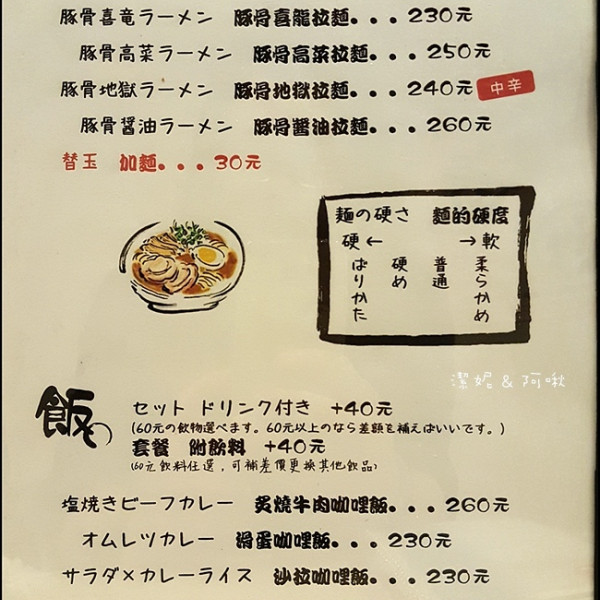 豚骨喜竜ラーメン 豚骨喜龍拉麵...230元
豚骨高菜ラーメン 豚骨高菜拉麵...250元
豚骨地獄ラーメン 豚骨地獄拉麵...240元 中辛
豚骨醤油ラーメン 豚骨醬油拉麵...260元
替玉 加麵...30元
麺の硬さ 麵的硬度
硬← →軟
ばりかた 硬め 普通 柔らかめ
潔妮&阿啾
飯。
セット ドリンク付き +40元
(60元の飲物選べます。60元以上のなら差額を補えばいいです。)
套餐 附飲料 +40元
(60元飲料任選,可補差價更換其他飲品)
塩焼きビーフカレー 炙燒牛肉咖哩飯...260元
オムレツカレー 滑蛋咖哩飯...230元
サラダ×カレーライス 沙拉咖哩飯...230元